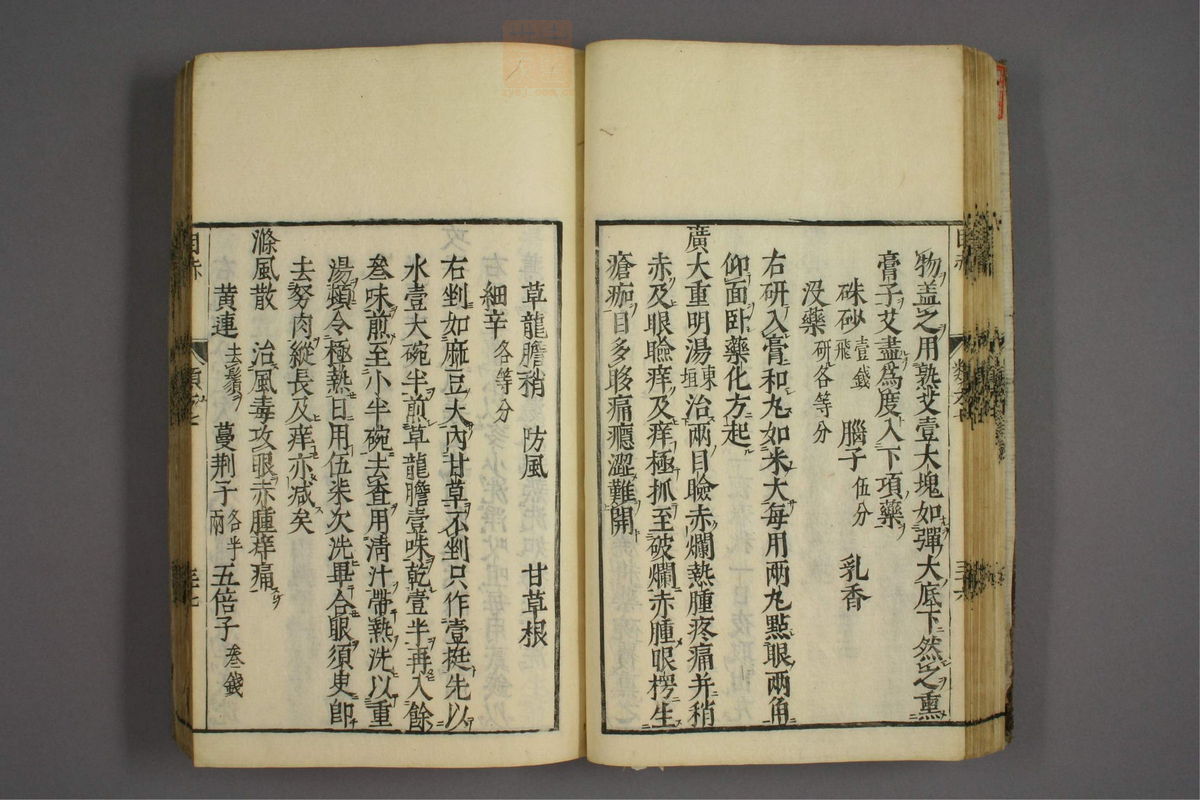 物盖之用熟艾壹大塊如彈大底下然之熏
膏子艾盡爲度入下項藥
硃砂飛壹錢　腦子伍分　乳香
没藥研各等分
右研入膏和丸如米大每用兩丸點眼兩角
仰面臥藥化方起
廣大重明湯東垣治兩目瞼赤爛熱腫疼痛并稍
赤及眼瞼痒及痒極抓至破爛赤腫眼楞生
瘡痂目多眵痛癮澀難開
草龍膽稍　防風　甘草根
細辛各等分
右剉如麻豆大內甘草不剉只作壹挺先以
水壹大碗半煎草龍膽壹味乾壹半再入餘
叁味煎至小半碗去查用淸汁帶熱洗以重
湯頓令極熱日用伍柒次洗畢合眼須臾卽
去努肉縱長及痒亦减矣
滌風散　治風毒攻眼赤腫痒痛
黃連去鬚　蔓荆子各半兩　五倍子叁錢